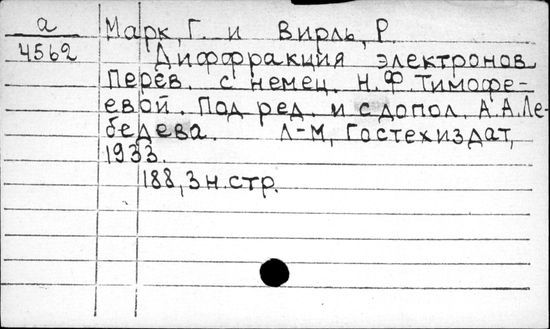 а
4562
Марк, Г. и Вирль, Р.
Дифффракция электронов
Перев. с немец. Н.Ф.Тимофе-
евой. Под ред. и с допол. А.А.Ле-
бедева. Л-М, Гостехиздат,
1933.
188, 3 н. стр.